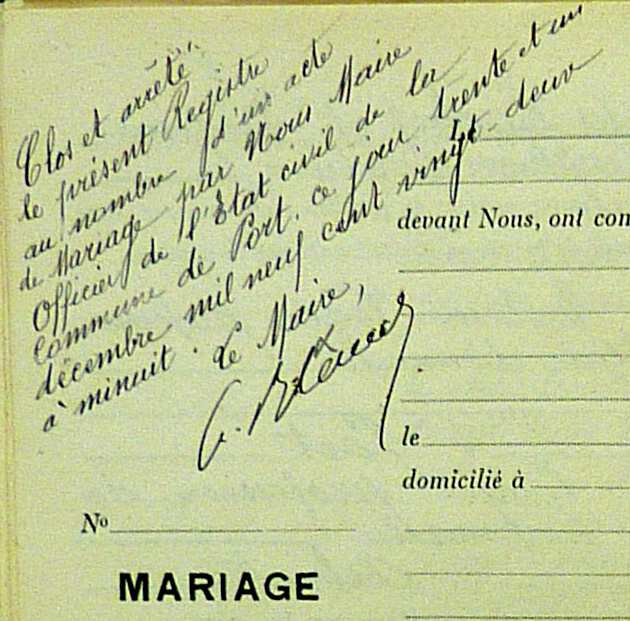 Clos et arrêté
le présent Registre
au nombre d'un acte
de Mariage par Nous Maire
Officier de l'Etat civil de la
Commune de Port, ce jour trente et un
décembre mil neuf cent vingt-deux
à minuit. Le Maire,
devant Nous, ont con
le
domicilié à
No
MARIAGE